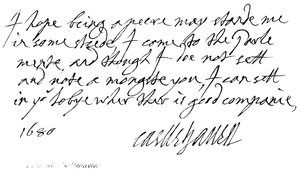 I hope being a peere may stande me
in some steede, I come to the Parle
mente, and though I doe not sett
and vote a mongste you, I can sett
in ye lobye wher ther is good companie,
1680
Castlehaven